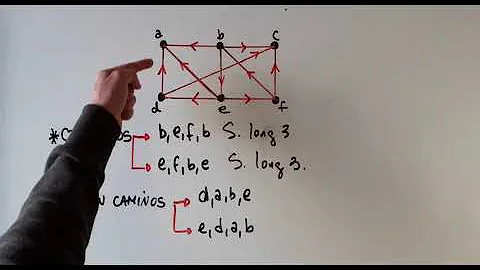 a b c
d e f
b,e,f,b S. long 3
e,f,b,e S. long 3.
CAMIÑOS d,a,b,e
e,d,a,b